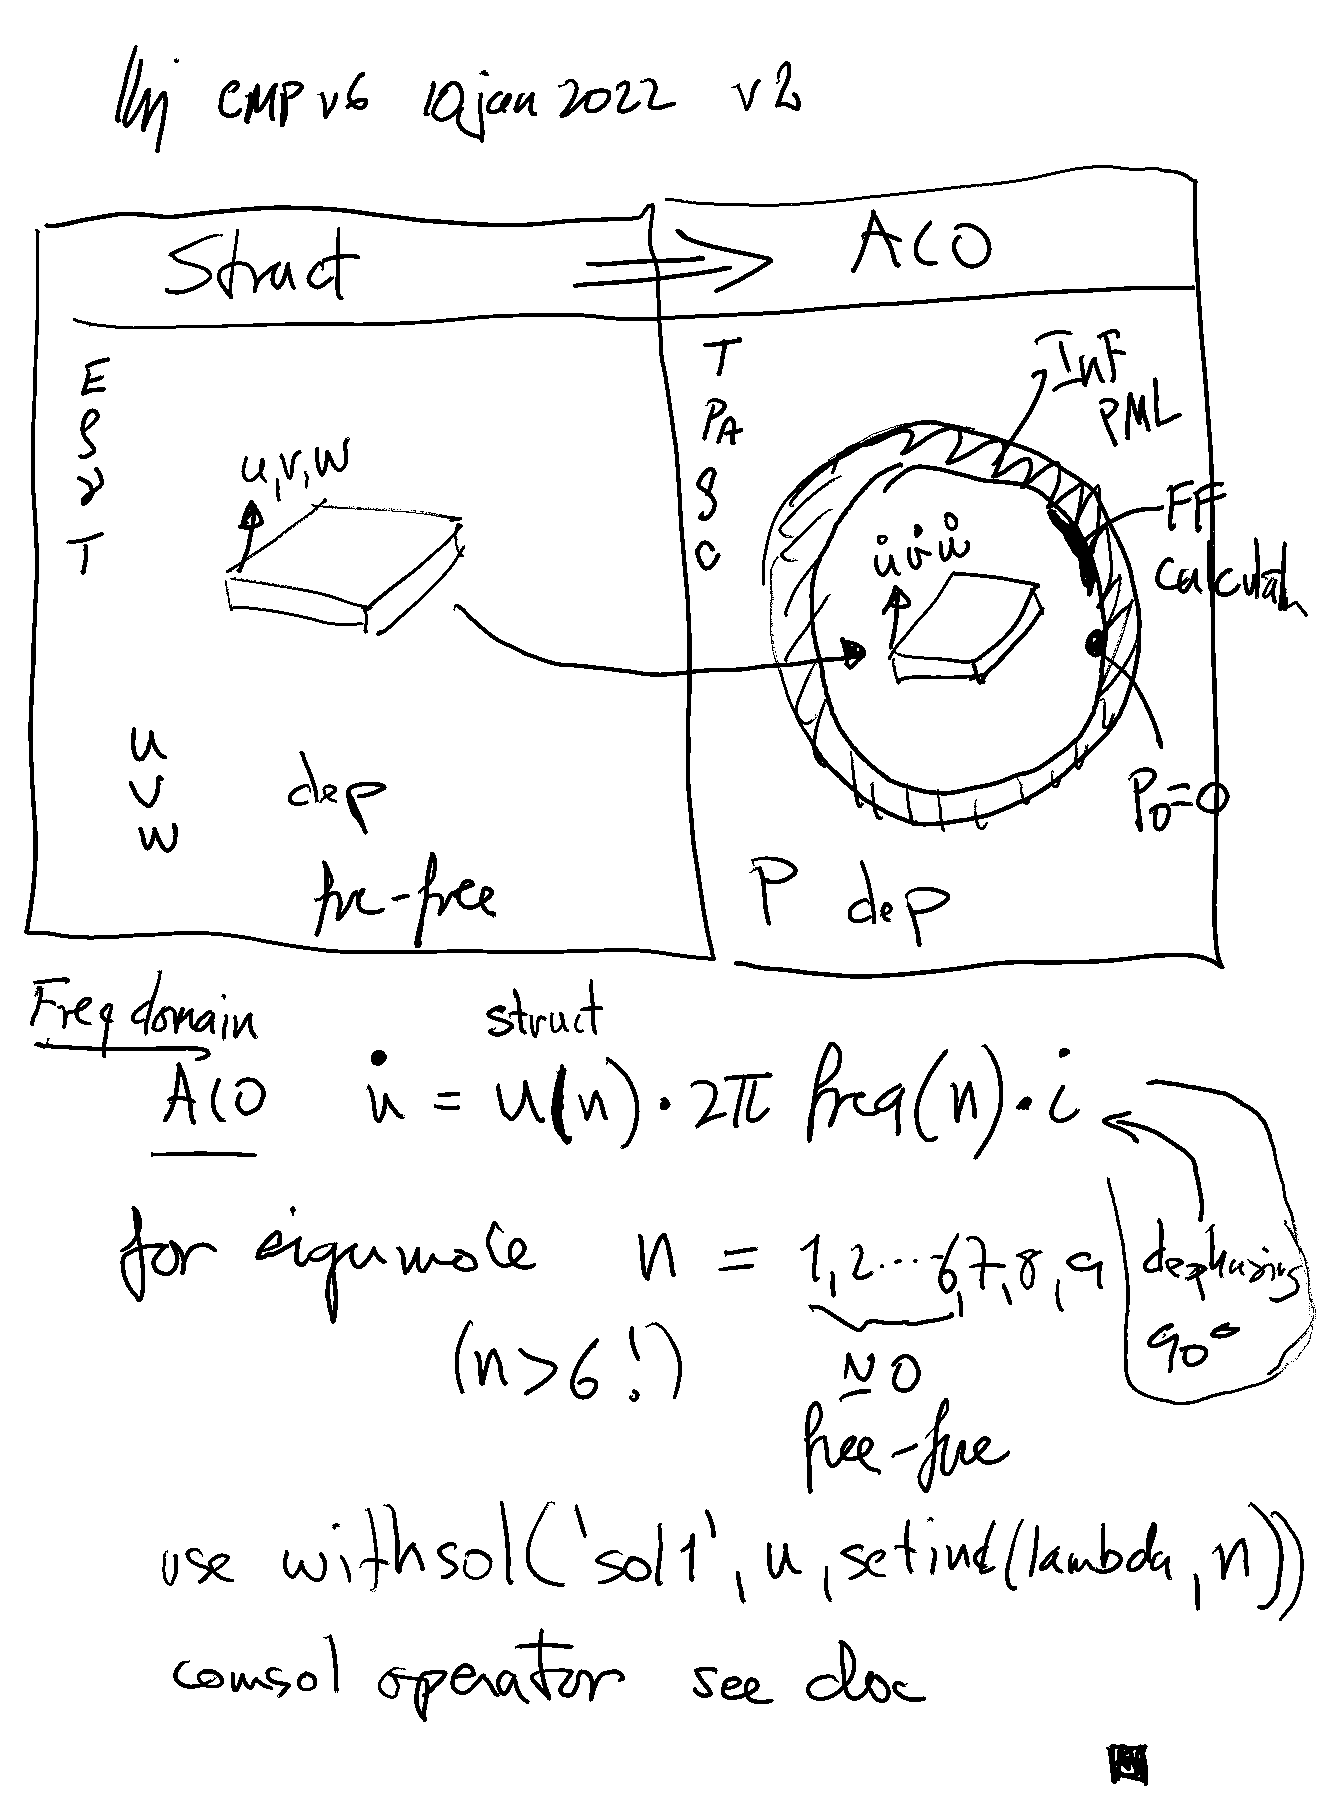 CMP v6 10 jan 2022 v2
Struct ⇒ ACO
E
ρ
ν
T
u,v,w
u
v
w
dep
fre-free
T
PA
ρ
c
InF
PML
FF
calculatn
u̇ v̇ ẇ
P₀=0
P dep
Freq domain
struct
ACO u̇ = u(n) · 2π freq(n) · i
for eigenmode n = 1,2...6,7,8,9
dephasing
90°
(n>6!) ≃ 0
free-free
use withsol('sol1', u, setind(lambda, n))
comsol operator see doc